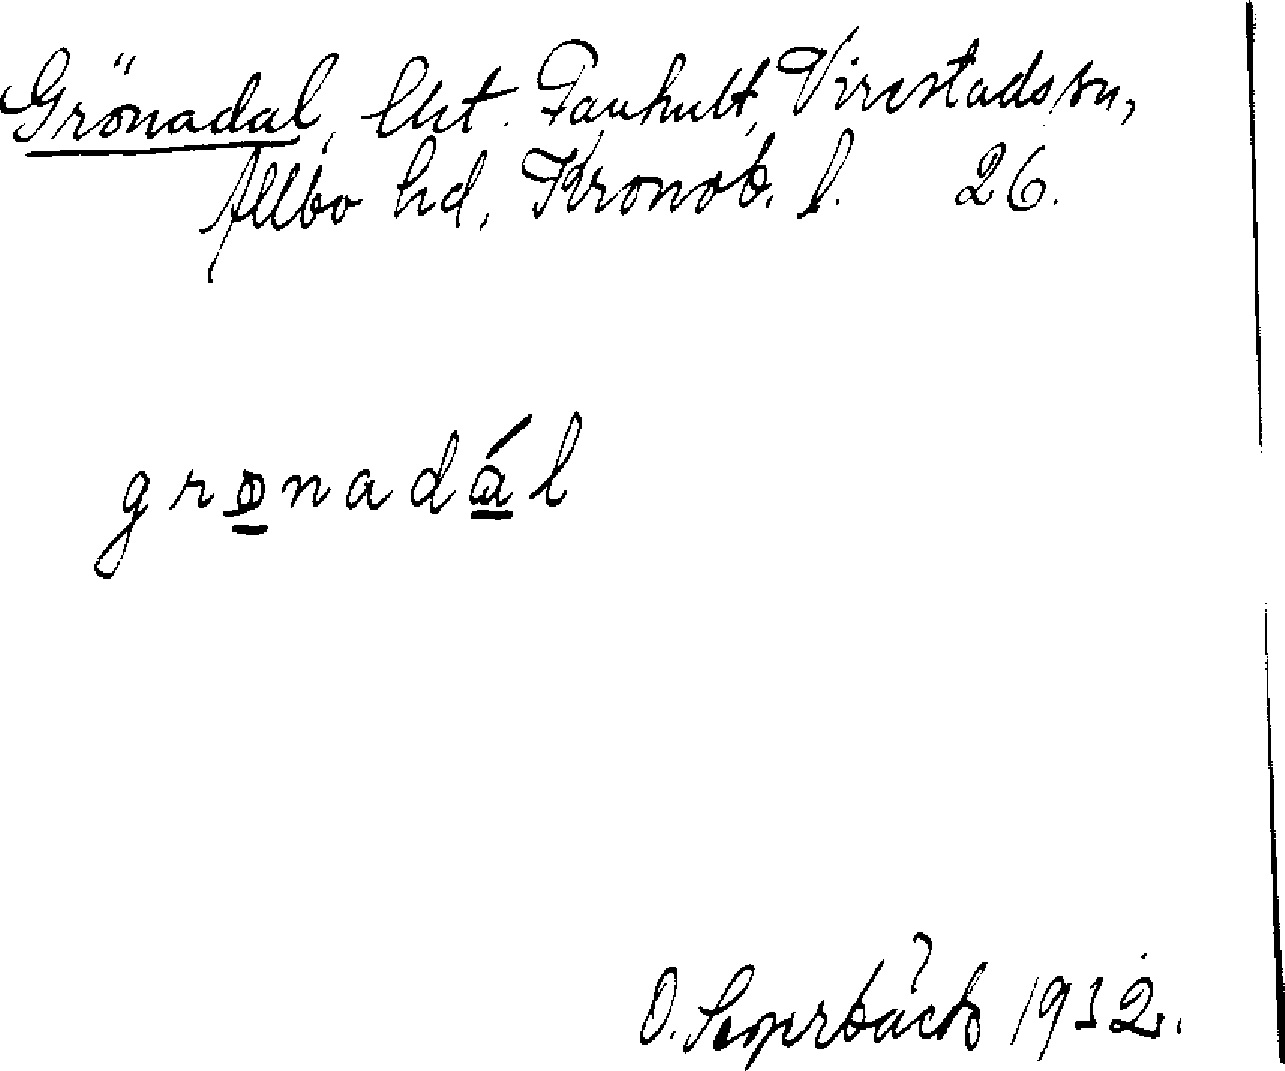 Grönadal, lht. Fanhult, Virestads sn,
Allbo hd, Kronob. l. 26.
grønadál
O. 1932.